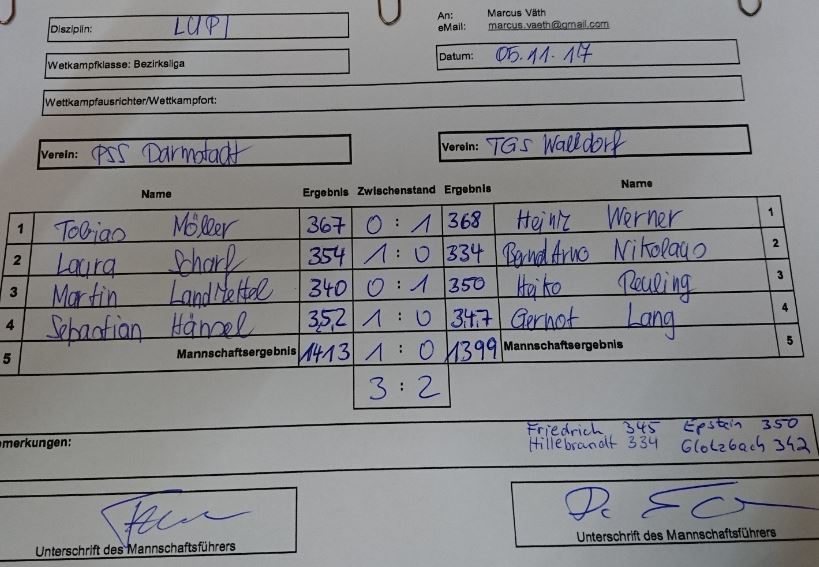 Disziplin: LUPI
An: Marcus Väth
eMail: marcus.vaeth@gmail.com
Wetkampfklasse: Bezirksliga
Datum: 05.11.17
Wettkampfausrichter/Wettkampfort:
Verein: PSS Darmstadt
Verein: TGS Walldorf
Name Ergebnis Zwischenstand Ergebnis Name
1 Tobias Möller 367 0 : 1 368 Heinz Werner 1
2 Laura Scharf 354 1 : 0 334 Bernd Arno Nikolaus 2
3 Martin Landzettel 340 0 : 1 350 Heiko Reuling 3
4 Sebastian Hänsel 352 1 : 0 347 Gernot Lang 4
5 Mannschaftsergebnis 1413 1 : 0 1399 Mannschaftsergebnis 5
3 : 2
emerkungen:
Friedrich 345 Epstein 350
Hillebrandt 334 Glotzbach 342
Unterschrift des Mannschaftsführers
Unterschrift des Mannschaftsführers